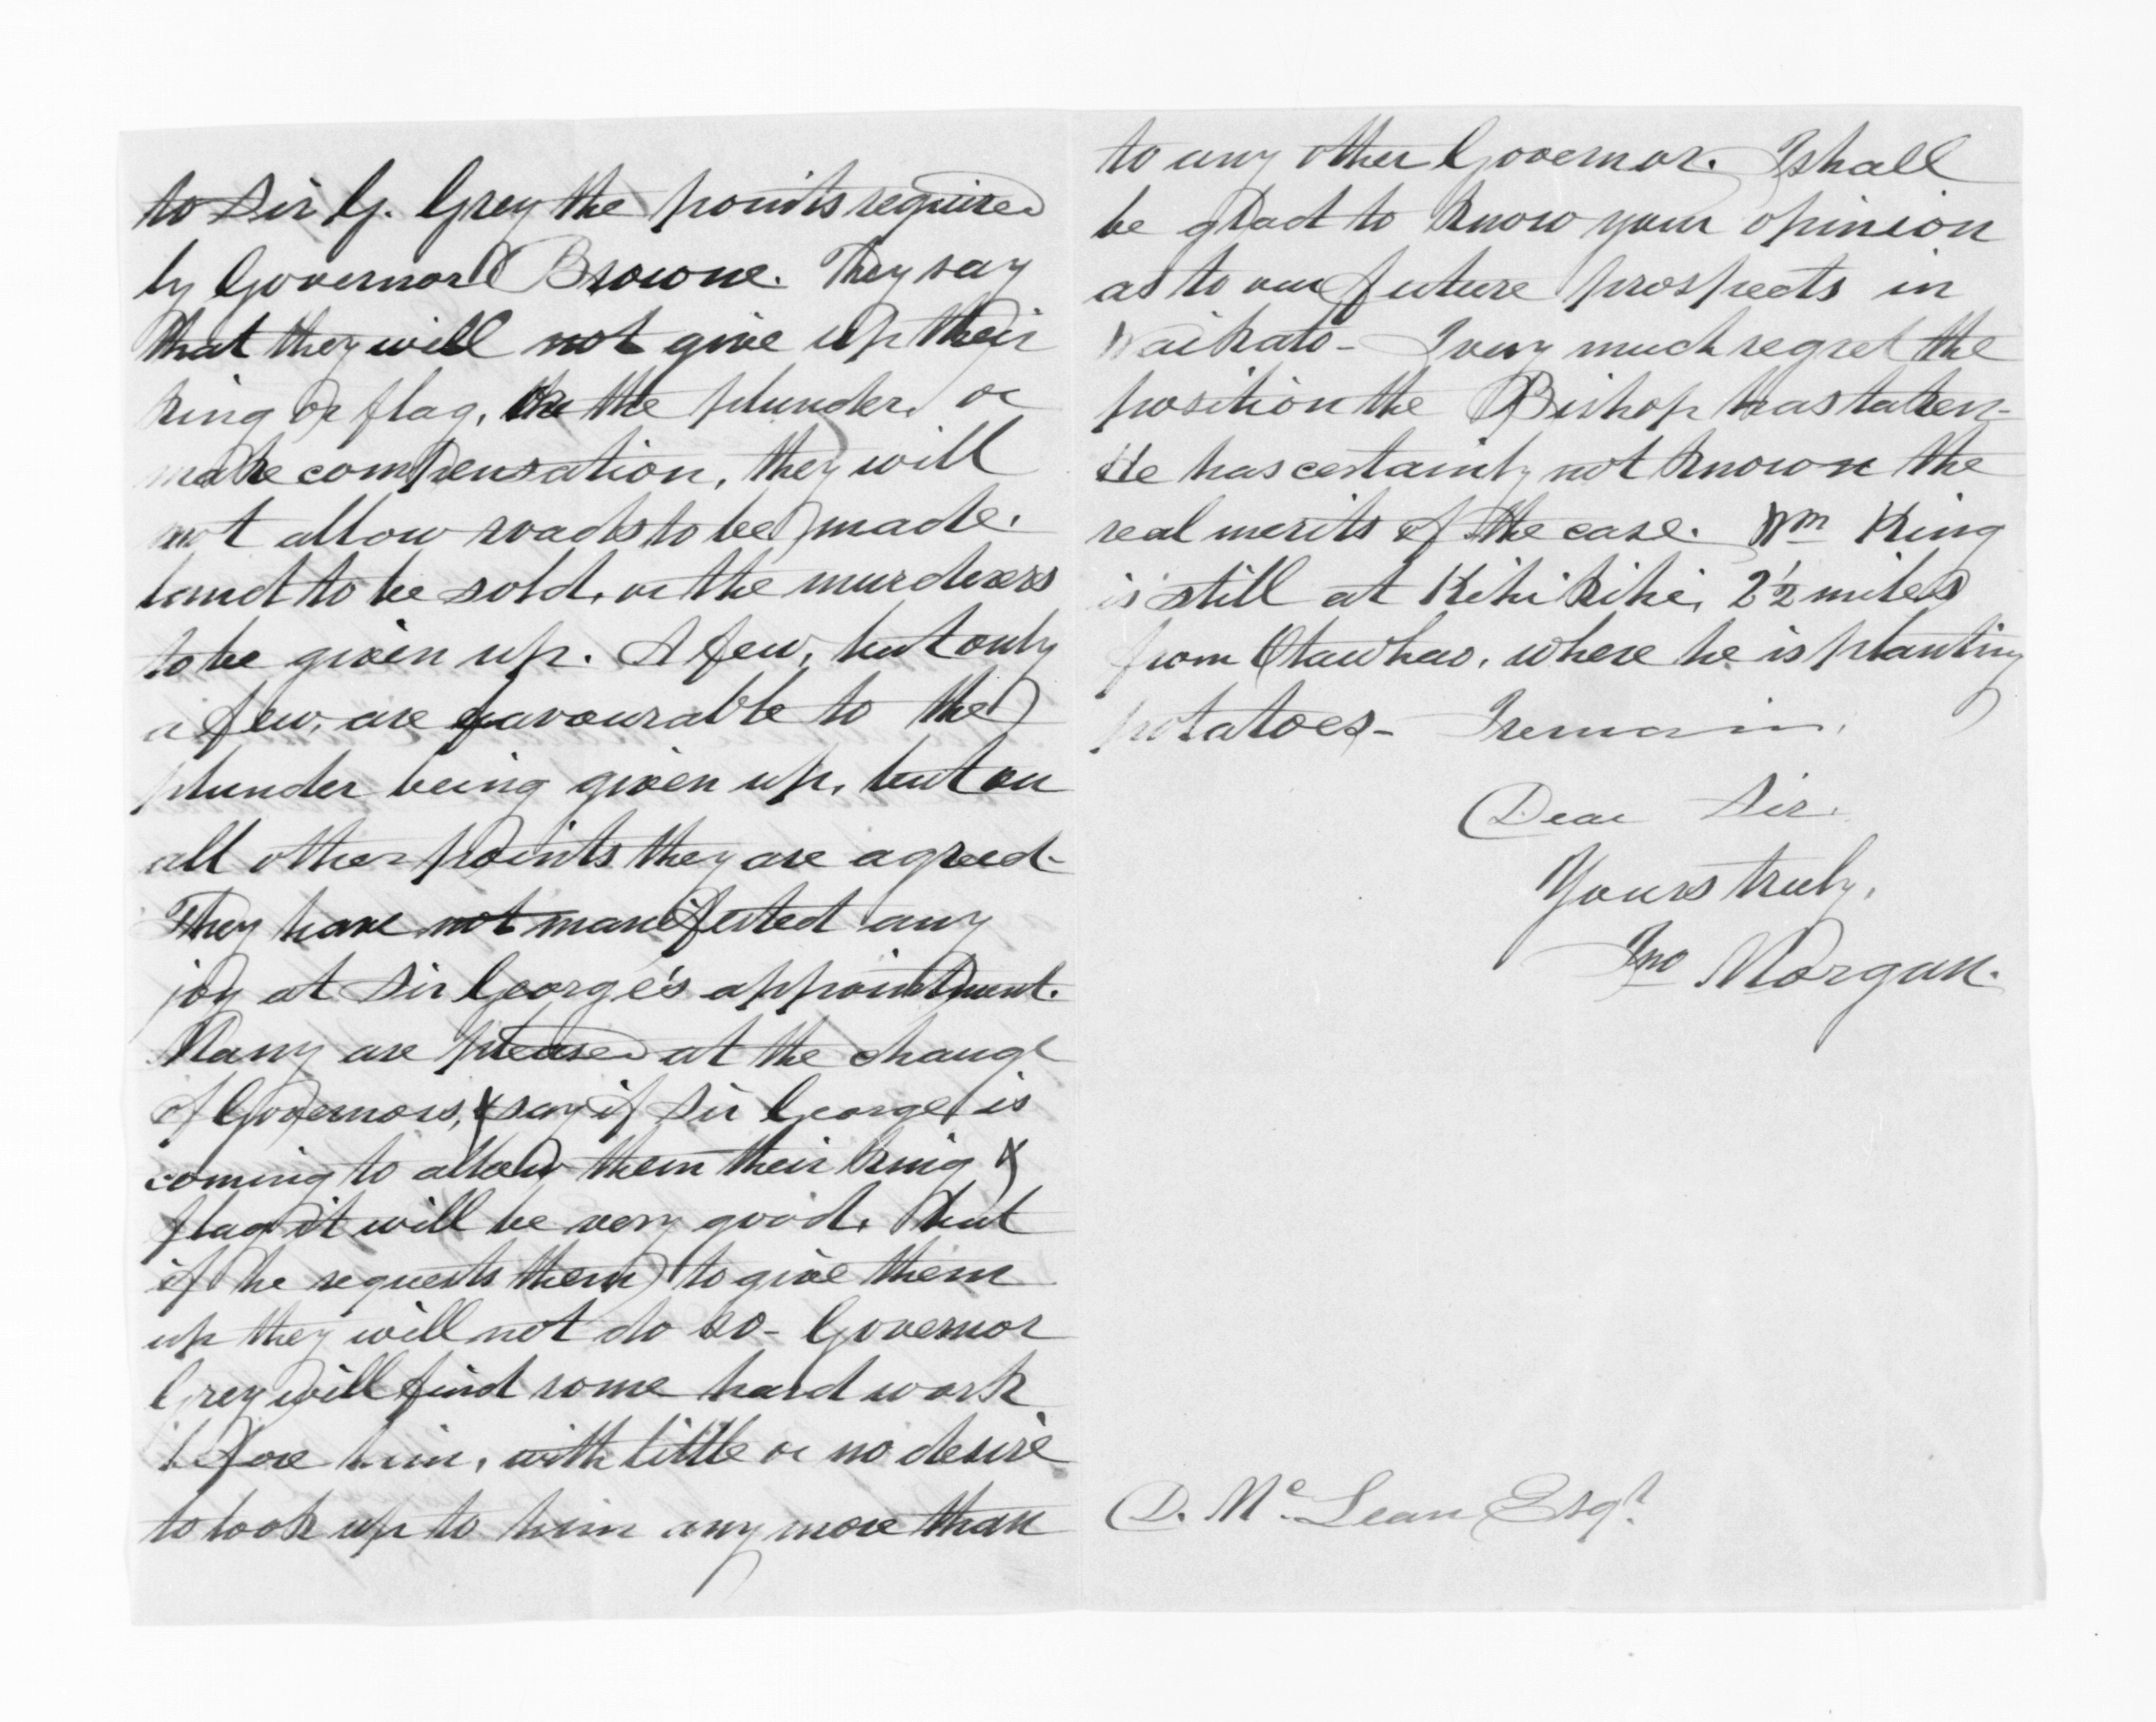 to Sir G. Grey the points required
by Governor Browne. They say
that they will not give up their
king or flag, or the plunder, or
make compensation, they will
not allow roads to be made,
land to be sold, or the murderers
to be given up. A few, but only
a few, are favourable to the
plunder being given up, but on
all other points they are agreed-
They have not manifested any
joy at Sir George's appointment.
Many are pleased at the change
of Governors, & say if Sir George is
coming to allow them their king &
flag it will be very good, but
if he requests them to give them
up they will not do so- Governor
Grey will find some hard work
before him, with little or no desire
to look up to him any more than
to any other Governor. I shall
be glad to know your opinion
as to our future prospects in
Waikato- I very much regret the
position the Bishop has taken-
He has certainly not known the
real merits of the case. Wm King
is still at Kihikihi, 2½ miles
from Otawhao, where he is planting
potatoes- I remain,
Dear Sir,
Yours truly,
Jno Morgan.
D. McLean Esqr.